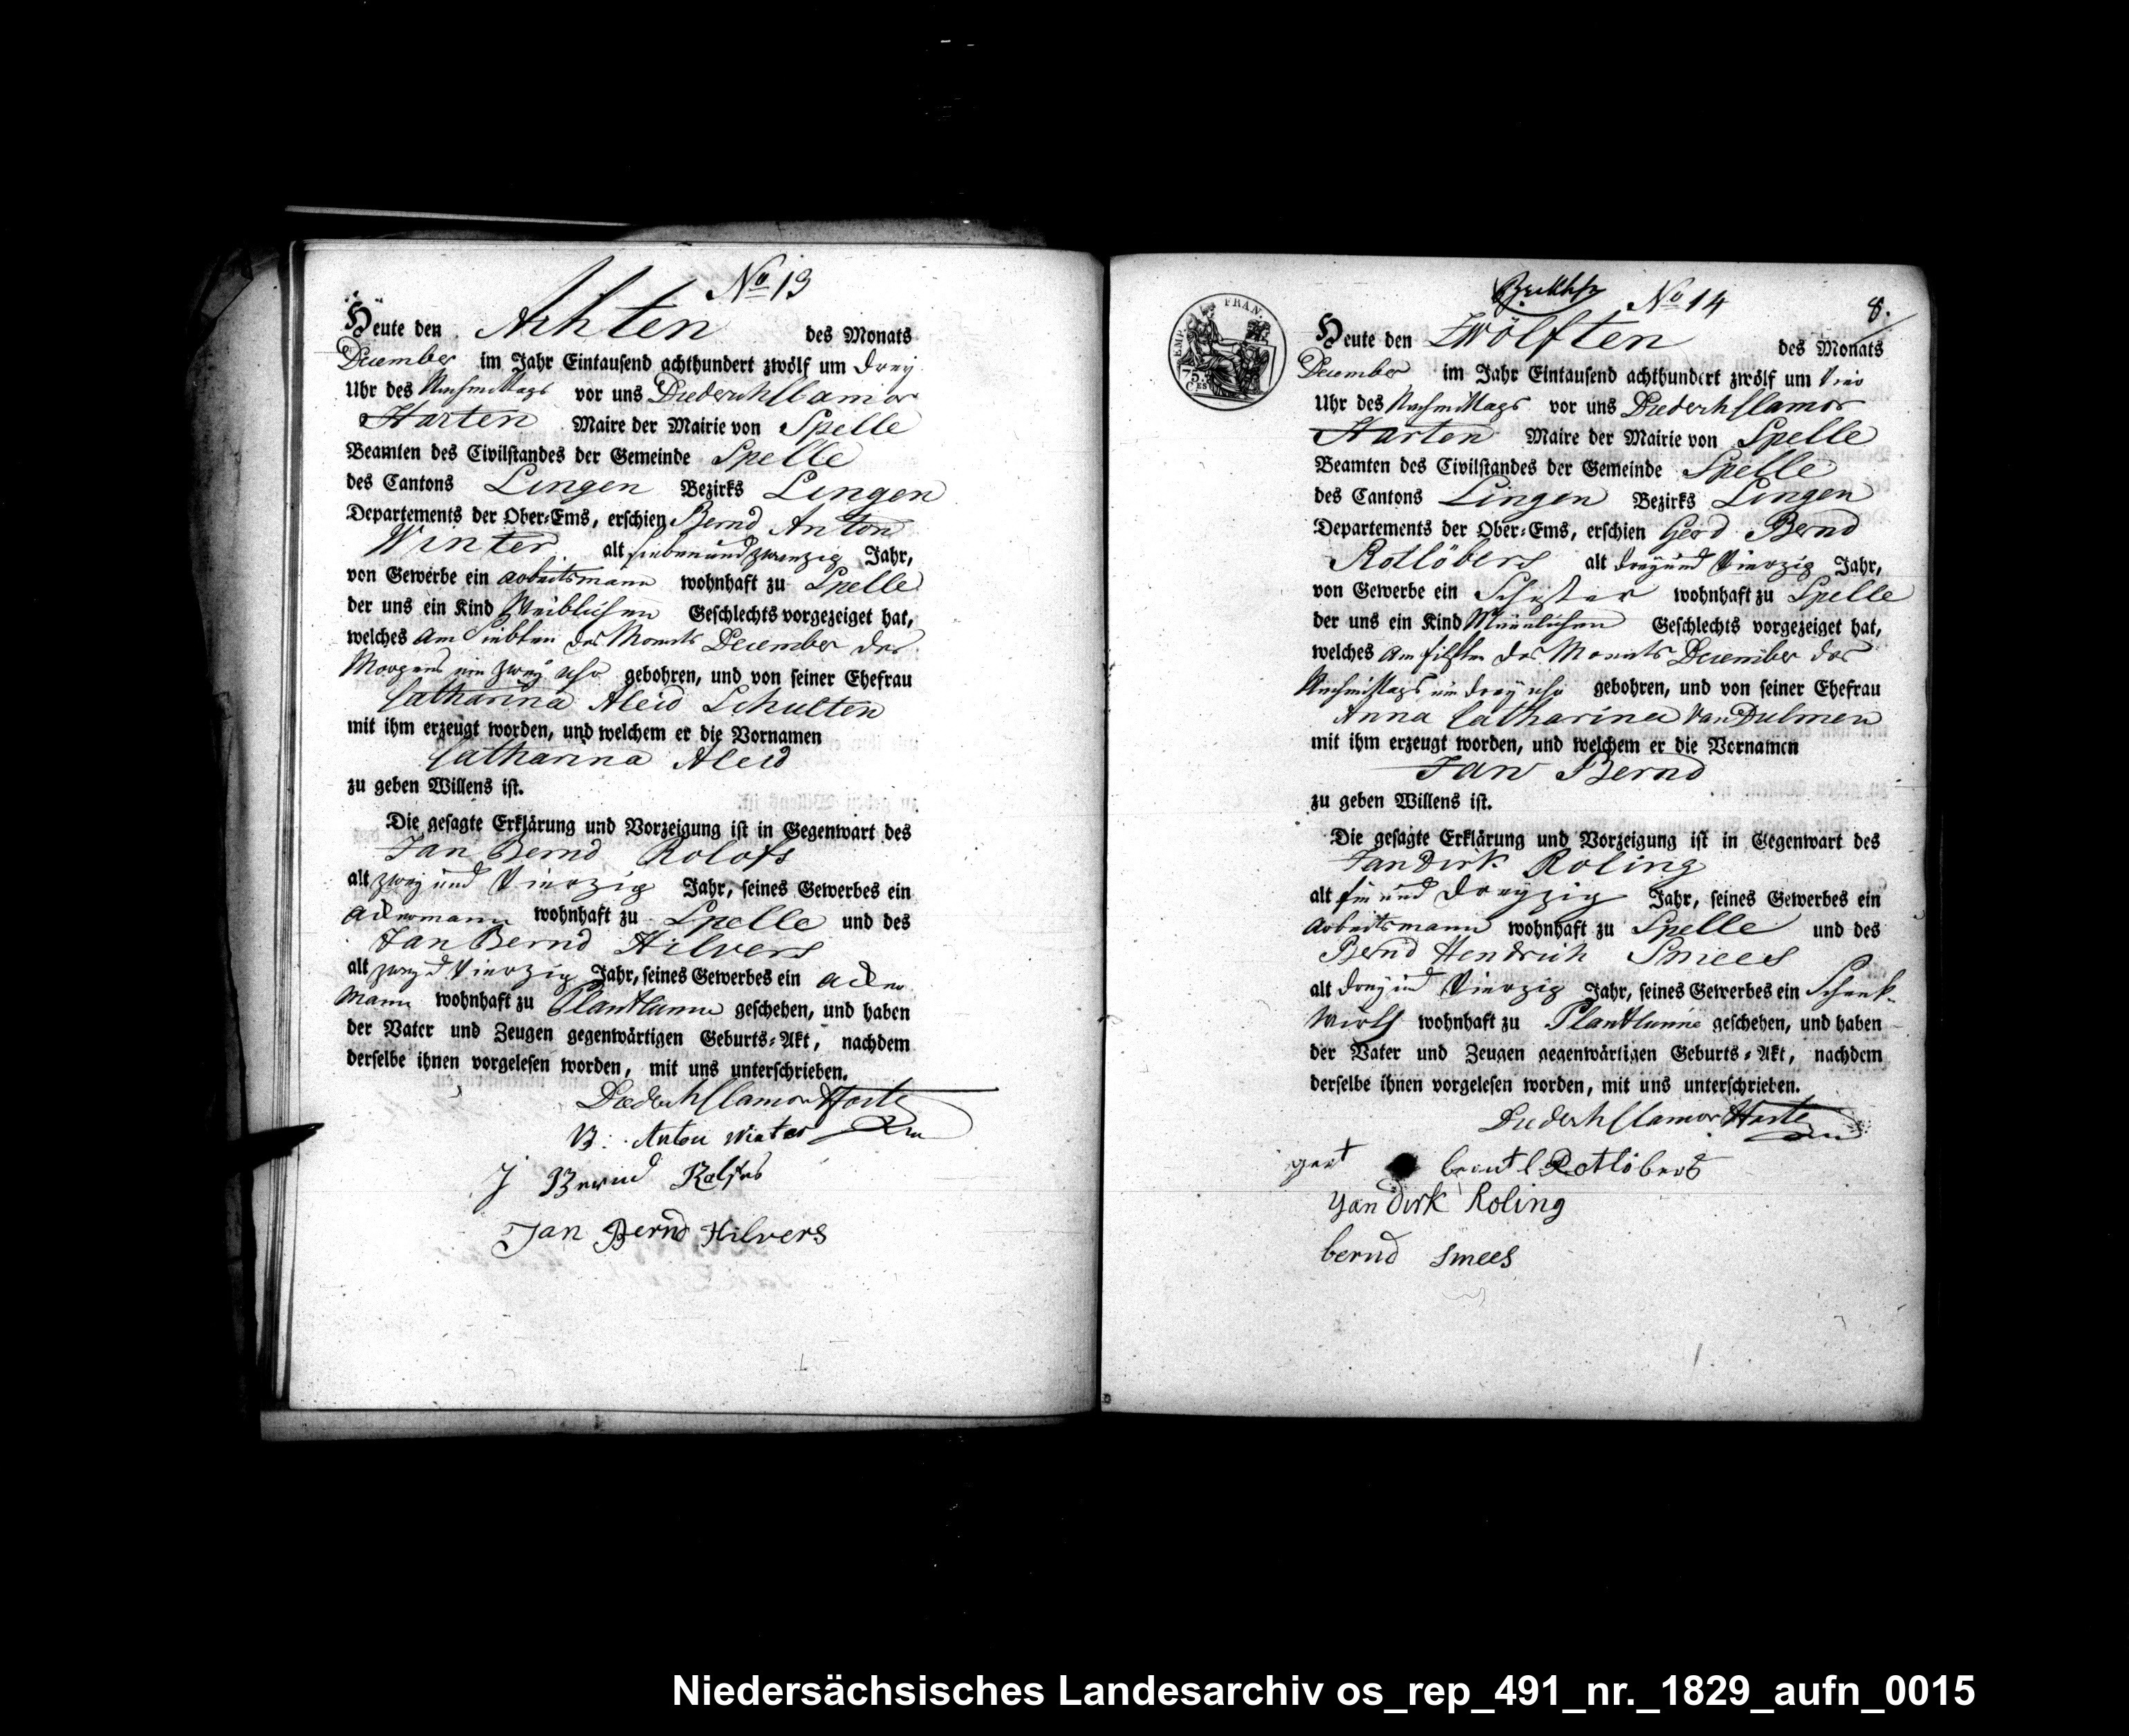 No 13
Heute den Achten des Monats
December im Jahr Eintausend achthundert zwölf um drey
Uhr des Nachmittags vor uns Diederich Clamor
Harten Maire der Mairie von Spelle
Beamten des Civilstandes der Gemeinde Spelle
des Cantons Lingen Bezirks Lingen
Departements der Ober-Ems, erschien Bernd Anton
Winter alt siebenundzwanzig Jahr,
von Gewerbe ein arbeitsmann wohnhaft zu Spelle
der uns ein Kind Weiblichen Geschlechts vorgezeiget hat,
welches am siebten des Monats December des
Morgens um zwey uhr gebohren, und von seiner Ehefrau
Catharina Aleid Schulten
mit ihm erzeugt worden, und welchem er die Vornamen
Catharina Aleid
zu geben Willens ist.
Die gesagte Erklärung und Vorzeigung ist in Gegenwart des
Jan Bernd Rolofs
alt zwey und Vierzig Jahr, seines Gewerbes ein
ackermann wohnhaft zu Spelle und des
Jan Bernd Hilvers
alt zwey u Vierzig Jahr, seines Gewerbes ein acker
mann wohnhaft zu Plantlünne geschehen, und haben
der Vater und Zeugen gegenwärtigen Geburts-Akt, nachdem
derselbe ihnen vorgelesen worden, mit uns unterschrieben.
Diederich Clamor Harte
B: Anton Winter
J Bernd Rolfes
Jan Bernd Hilvers
EMP. FRAN.
75.
CES
No 14
8.
Heute den Zwölften des Monats
December im Jahr Eintausend achthundert zwölf um Vier
Uhr des Nachmittags vor uns Diederich Clamor
Harten Maire der Mairie von Spelle
Beamten des Civilstandes der Gemeinde Spelle
des Cantons Lingen Bezirks Lingen
Departements der Ober-Ems, erschien Gerd Bernd
Rotlöbers alt dreyund Vierzig Jahr,
von Gewerbe ein Schuster wohnhaft zu Spelle
der uns ein Kind Männlichen Geschlechts vorgezeiget hat,
welches am Elften des Monats December des
Nachmittags um drey uhr gebohren, und von seiner Ehefrau
Anna Catharina van Dulmen
mit ihm erzeugt worden, und welchem er die Vornamen
Jan Bernd
zu geben Willens ist.
Die gesagte Erklärung und Vorzeigung ist in Gegenwart des
Jan Dirk Roling
alt ein und dreyzig Jahr, seines Gewerbes ein
arbeitsmann wohnhaft zu Spelle und des
Bernd Hendrich Smees
alt drey und Vierzig Jahr, seines Gewerbes ein Schenk-
wirth wohnhaft zu Plantlünne geschehen, und haben
der Vater und Zeugen gegenwärtigen Geburts-Akt, nachdem
derselbe ihnen vorgelesen worden, mit uns unterschrieben.
Diederich Clamor Harte
gert Rotlöbers
Yan dirk Roling
bernd Smees
Niedersächsisches Landesarchiv os_rep_491_nr._1829_aufn_0015